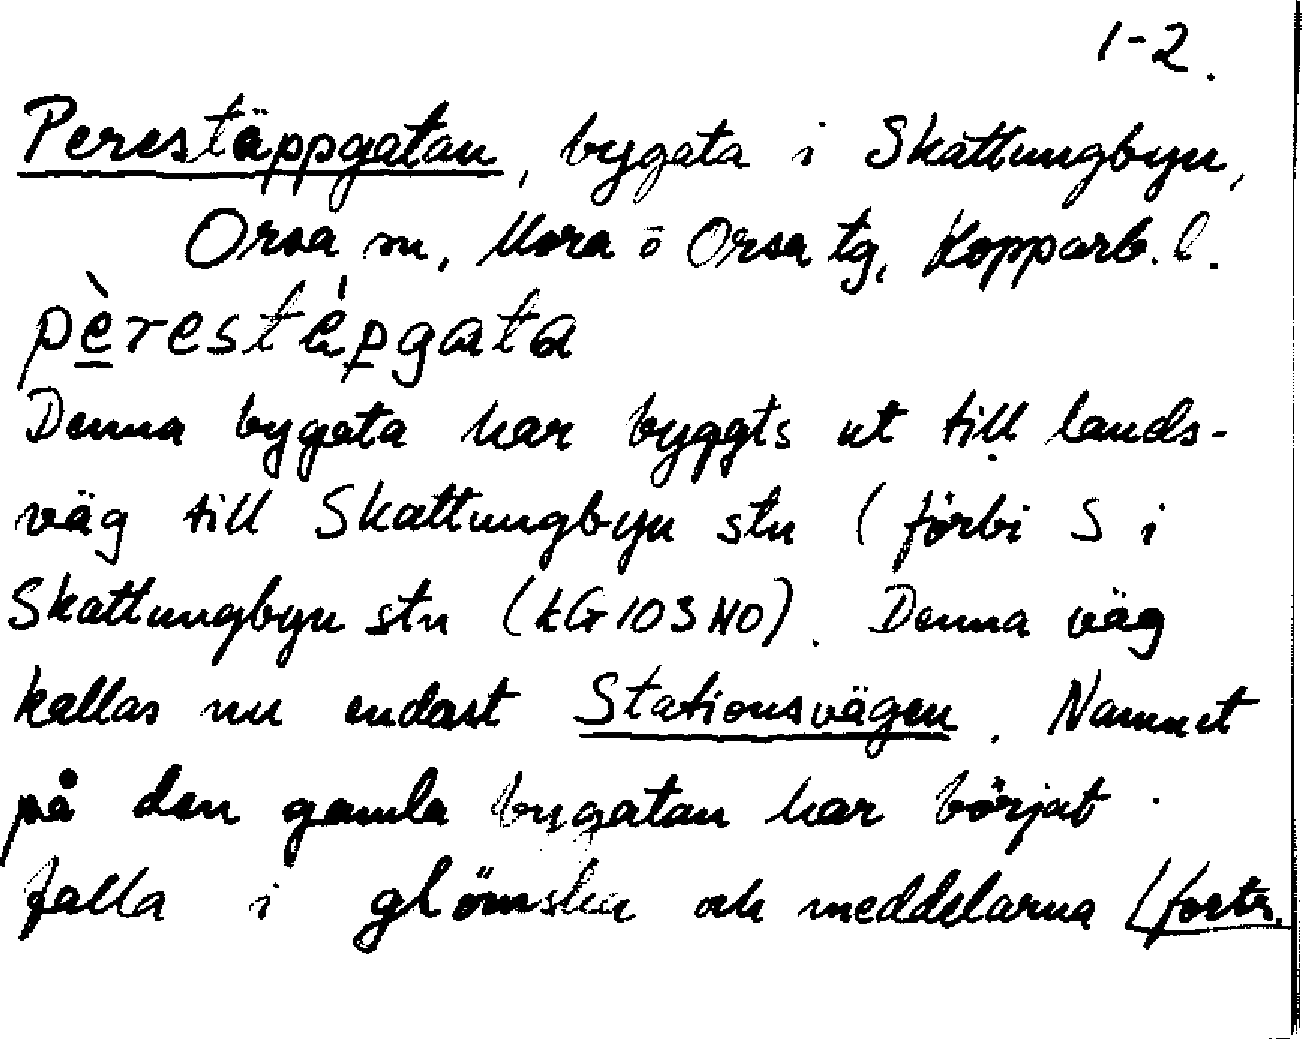 1-2.
Perestäppgatan, bygata i Skattungbyn,
Orsa sn, Mora o Orsa tg, Kopparb. l.
pèrestä́pgata
Denna bygata har byggts ut till lands-
väg till Skattungbyn stn (förbi S i
Skattungbyn stn (kG 103 NO). Denna väg
kallas nu endast Stationsvägen. Namnet
på den gamla bygatan har börjat
falla i glömska och meddelarna (forts.